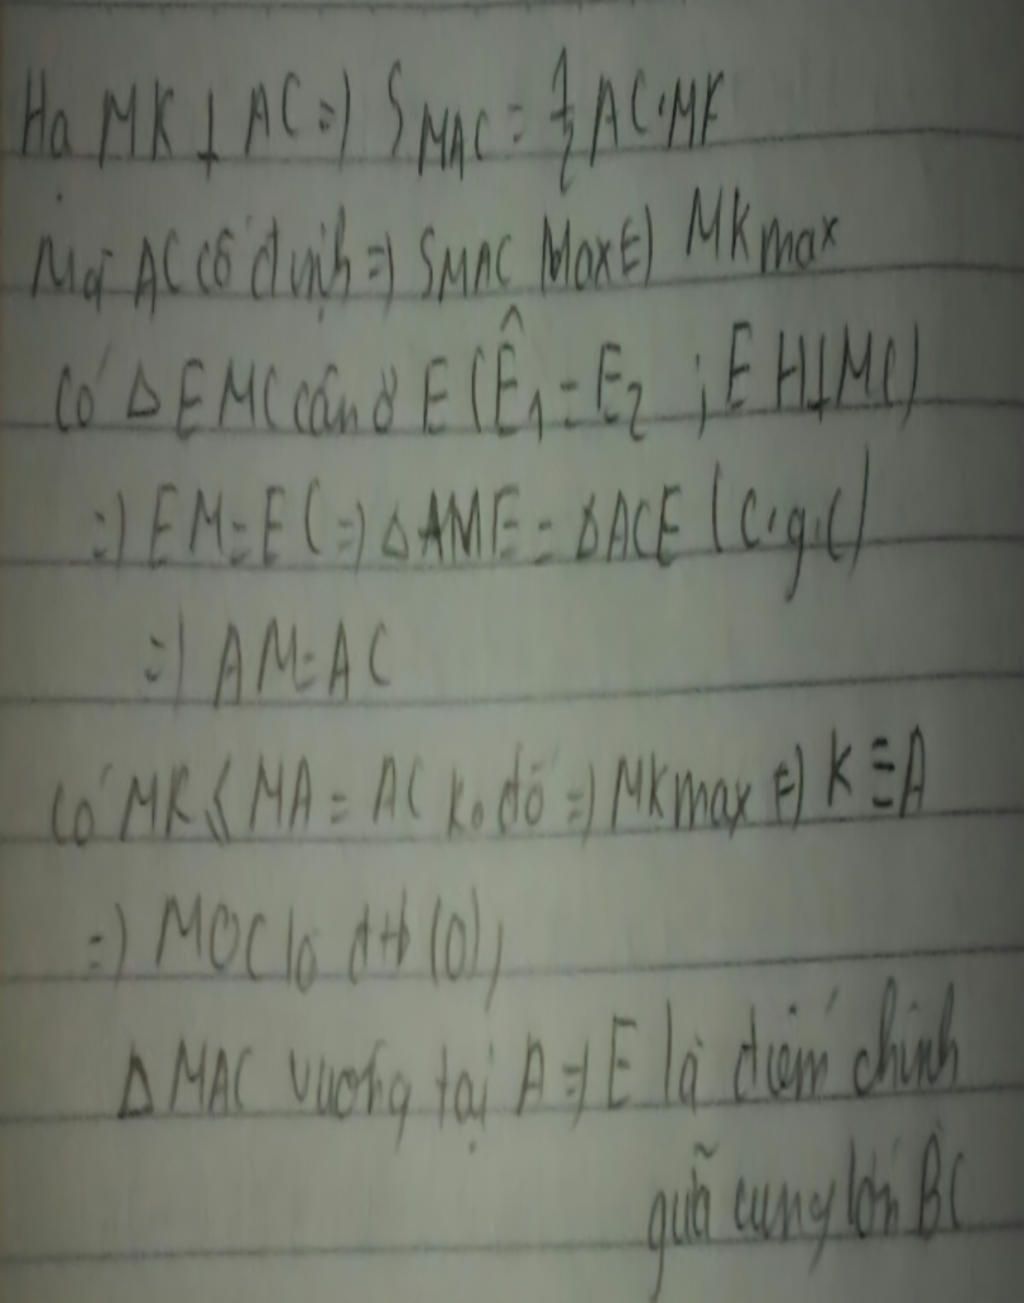 Hạ MK ⊥ AC => S MAC = 1/2 AC.MK
Mà AC cố định => SMAC Max <=> MK max
Có Δ EMC cân ở E (Ê1 = E2 ; EH⊥MC)
=> EM = EC => Δ AME = Δ ACE (c.g.c)
=> AM = AC
Có MK ≤ MA = AC ko đổ => MK max <=> K ≡ A
=> MOC là đtb (O),
Δ MAC vuông tại A => E là điểm chính
giữa cung lớn BC